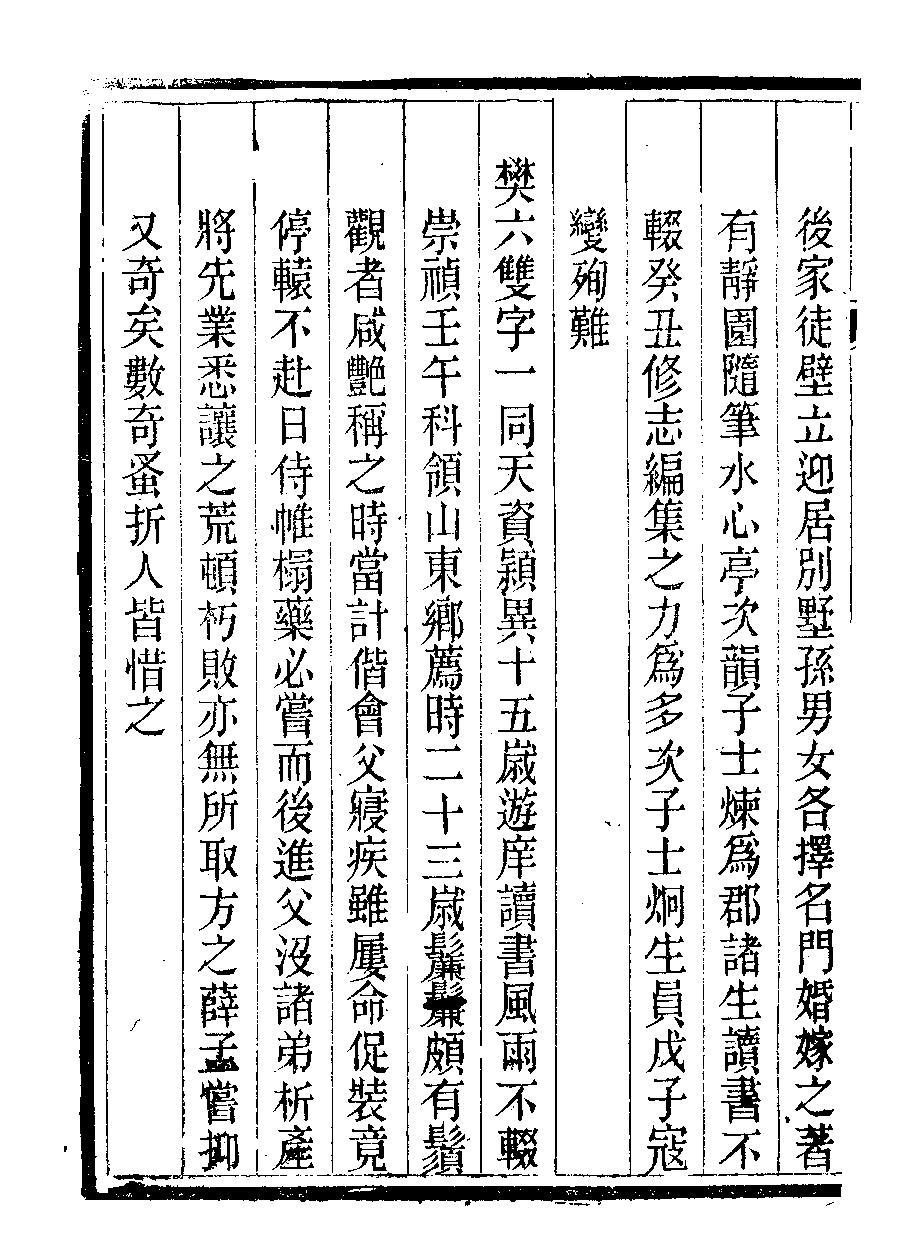 後家徒壁立迎居別墅孫男女各擇名門婚嫁之著
有靜園隨筆水心亭次韻子士煉爲郡諸生讀書不
輟癸丑修志編集之力爲多次子士炯生員戊子寇
變殉難
樊六雙字一同天資穎異十五歲遊庠讀書風雨不輟
崇禎壬午科領山東鄉薦時二十三歲鬑鬑頗有鬚
觀者咸艷稱之時當計偕會父寢疾雖屢命促裝竟
停轅不赴日侍帷榻藥必嘗而後進父沒諸弟析產
將先業悉讓之荒頓朽敗亦無所取方之薛孟嘗抑
又奇矣數奇蚤折人皆惜之